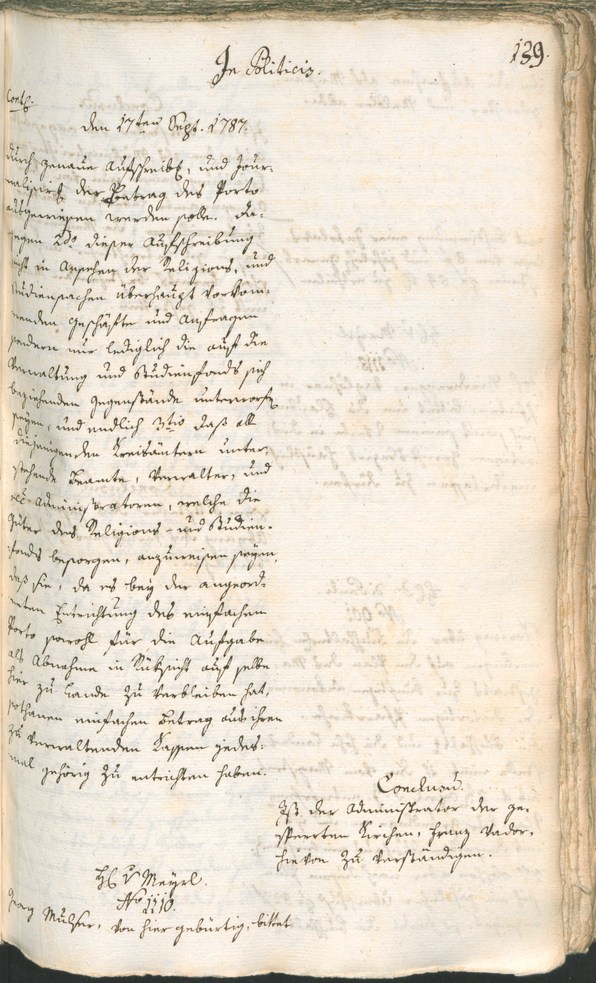 139.
In Politicis.
Cont:
den 17ten Sept. 1787.
durch genaue Aufschreib[ung], und Jour-
nalisir[ung] der Betrag des Porto
ausgewiesen werden solle. Da-
gegen 2do dieser Aufschreibung
nicht in Ansehen der Religions, und
Studiensachen überhaupt vorkom-
menden Geschäfte und Anfragen
sondern nur lediglich die auf die
Verwaltung und Studienfonds sich
beziehenden Gegenstände unterworfen
seyen, und endlich 3tio daß all
diejenigen den Kreisämtern unter-
stehende Beamte, Verwalter, und
Administratoren, welche die
Güter des Religions- und Studien-
fonds besorgen, anzuweisen seyen,
daß sie, da es bey der angeord-
neten Entrichtung des einfachen
Porto sowohl für die Aufgabe
als Abnahme in Rüksicht auf selbe
hier zu Lande zu verbleiben hat,
sothanen einfachen Betrag aus ihren
zu verwaltenden Kassen jedes-
mal gehörig zu entrichten haben.
Conclusum.
Ist der Administrator der ge-
sperrten Kirchen, Franz Vador,
hievon zu verständigen.
H. v Meyrl.
No 1110.
Georg Mulser, von hier gebürtig, bittet